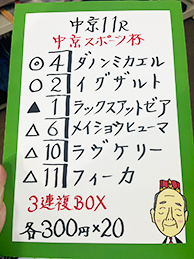 中京11R
中京スポーツ杯
◎4 ダノンミカエル
○2 イグザルト
▲1 ラックスアットゼア
△6 メイショウヒューマ
△10 ラヴケリー
△11 フィーカ
3連複BOX
各300円×20